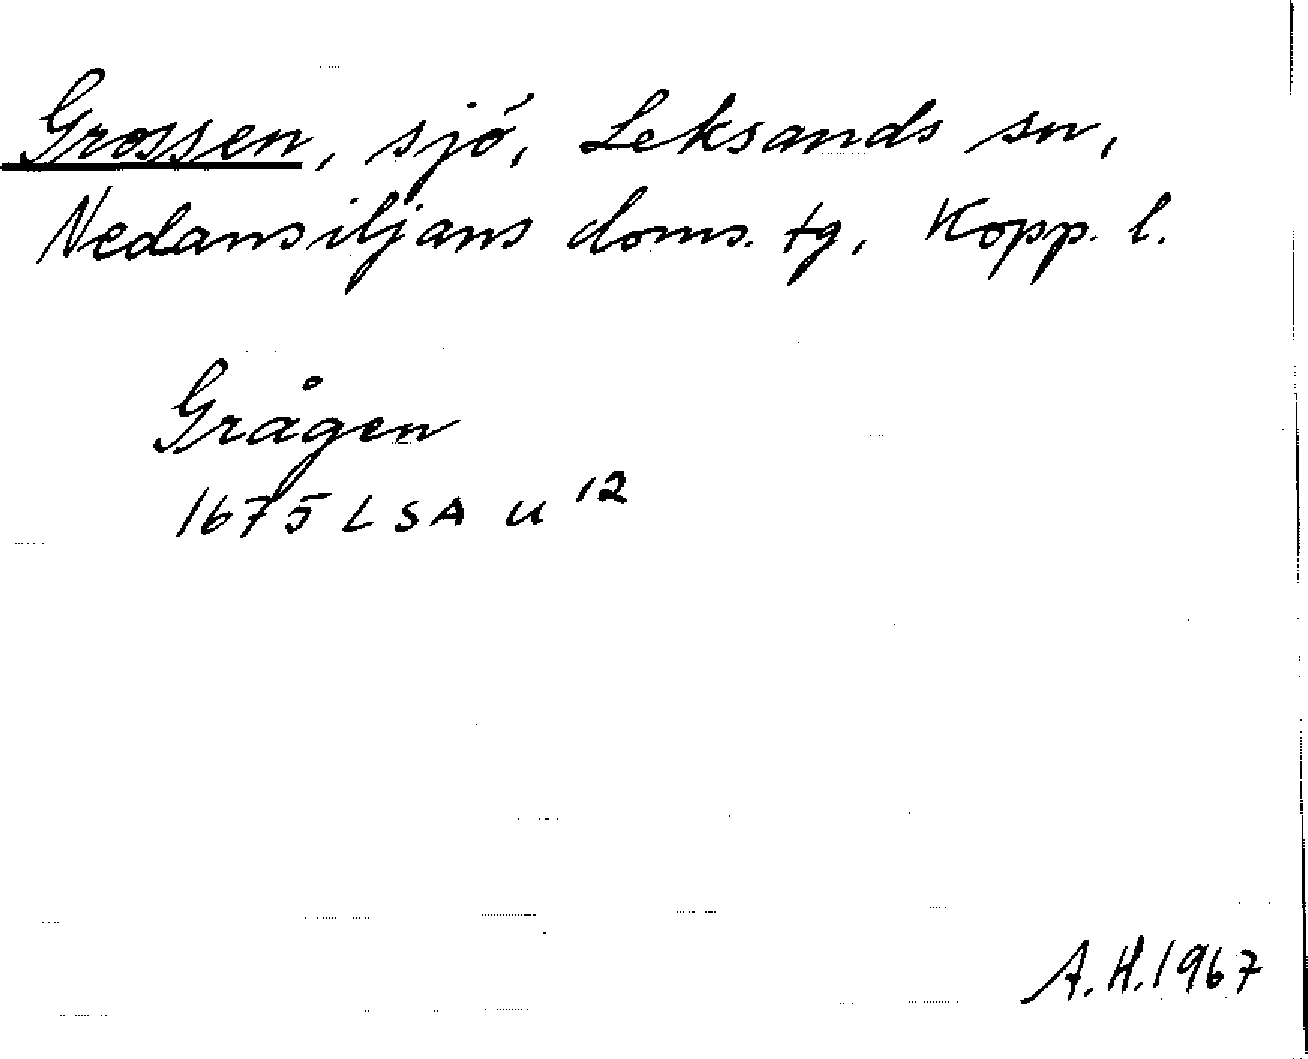 Grossen, sjö, Leksands sn,
Nedansiljans doms. tg, Kopp. l.
Grågen
1675 LSA U 12
A.H. 1967